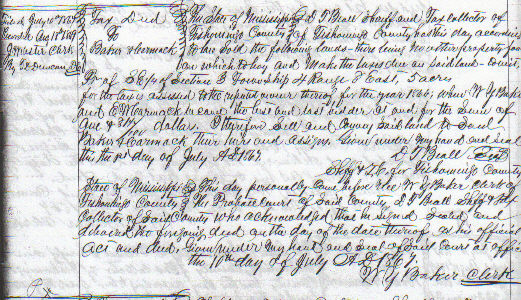 Filed July 10th 1867
Recorded Aug 18th 1869
Master Clerk
By Duncan D.C.
Tax Deed
To
Baker & Carmack
The State of Mississippi } I, D. T. Beall Sheriff and Tax Collector of
Tishomingo County } of Tishomingo County has this day according
to law sold the following lands there being no other property found
on which to levy and make the taxes due on said land to wit
Pt of SE/4 of Section 3 Township 4 Range 8 East, 5 acres
for the tax is assessed to the owner thereof for the year 1866, when W. Y. Baker
and Carmack became the best and last bidder at and for the sum of
One & dollar. I therefore sell and convey said land to said
Baker & Carmack their heirs and assigns. Given under my hand and seal
this the day of July A.D. 1867.
D. T. Beall Seal
Shff & T.C. for Tishomingo County
State of Mississippi } This day personally came before me W. Y. Baker Clerk of
Tishomingo County } the Probate Court of said County, D. T. Beall Shff & Tax
Collector of said County who acknowledged that he signed sealed and
delivered the foregoing deed on the day of the date thereof as his official
act and deed. Given under my hand and seal of said Court at office
the 10th day of July A.D. 1867.
W. Y. Baker Clerk